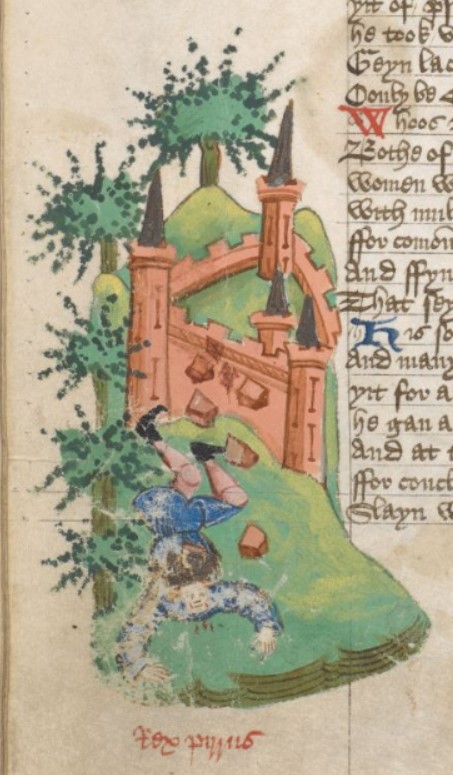 yit of
he took
Geyn
Oonly be
Whoos
Bothe of
Women
With
ffor comou
And ffyn
That sey
His so
And many
yit for a
he gan a
And at
ffor conc
Slayn w
Rex pirrus